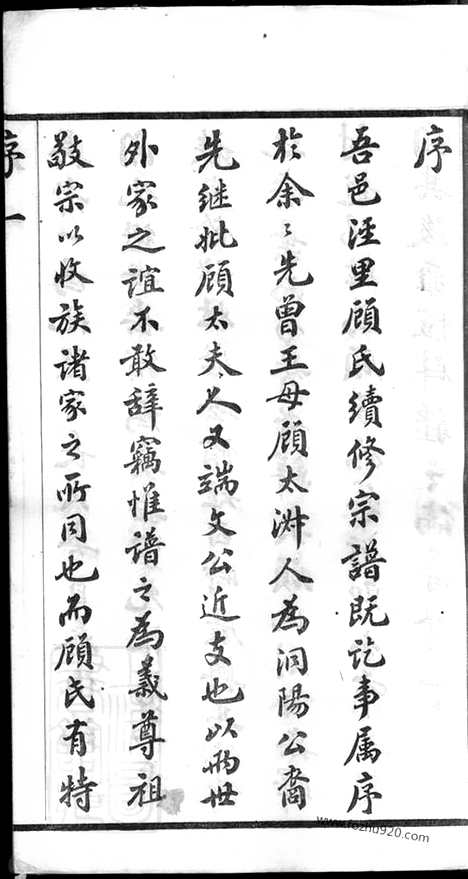 序
吾邑涇里顧氏續修宗譜既訖事属序
於余余先曾王母顧太淑人為洞陽公裔
先继妣顧太夫人又端文公近支也以兩世
外家之誼不敢辞竊惟譜之為義尊祖
敬宗以收族諸家之所同也而顧氏有特
序一
www.fozhu920.com